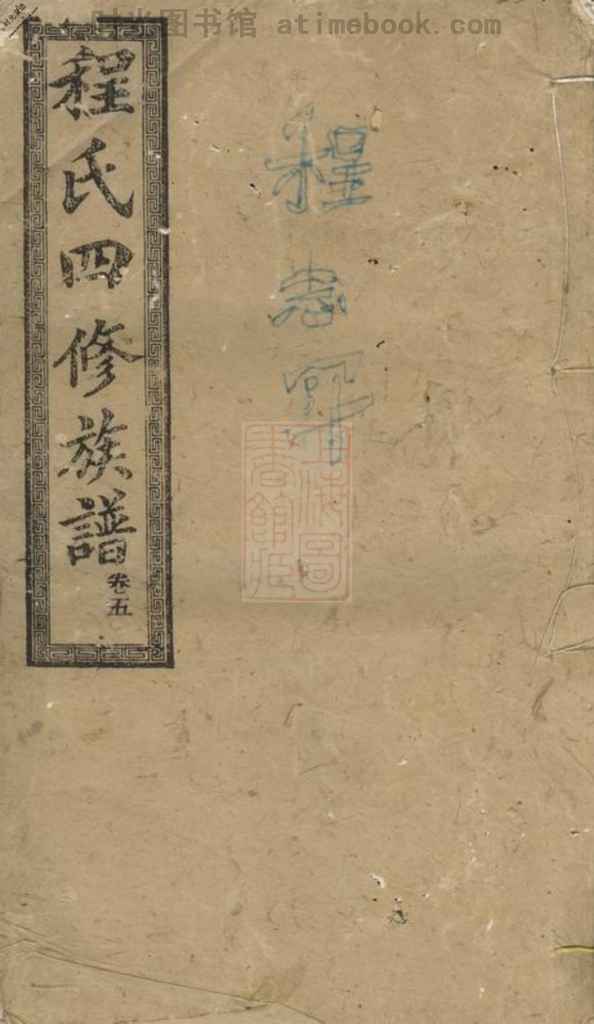 时光图书馆 atimebook.com
程氏四修族譜
卷五
程